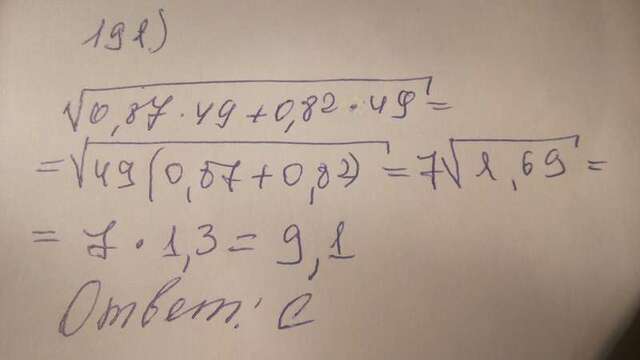 191)
√0,87·49+0,82·49=
=√49(0,87+0,82)=7√1,69=
=7·1,3=9,1
Ответ: С